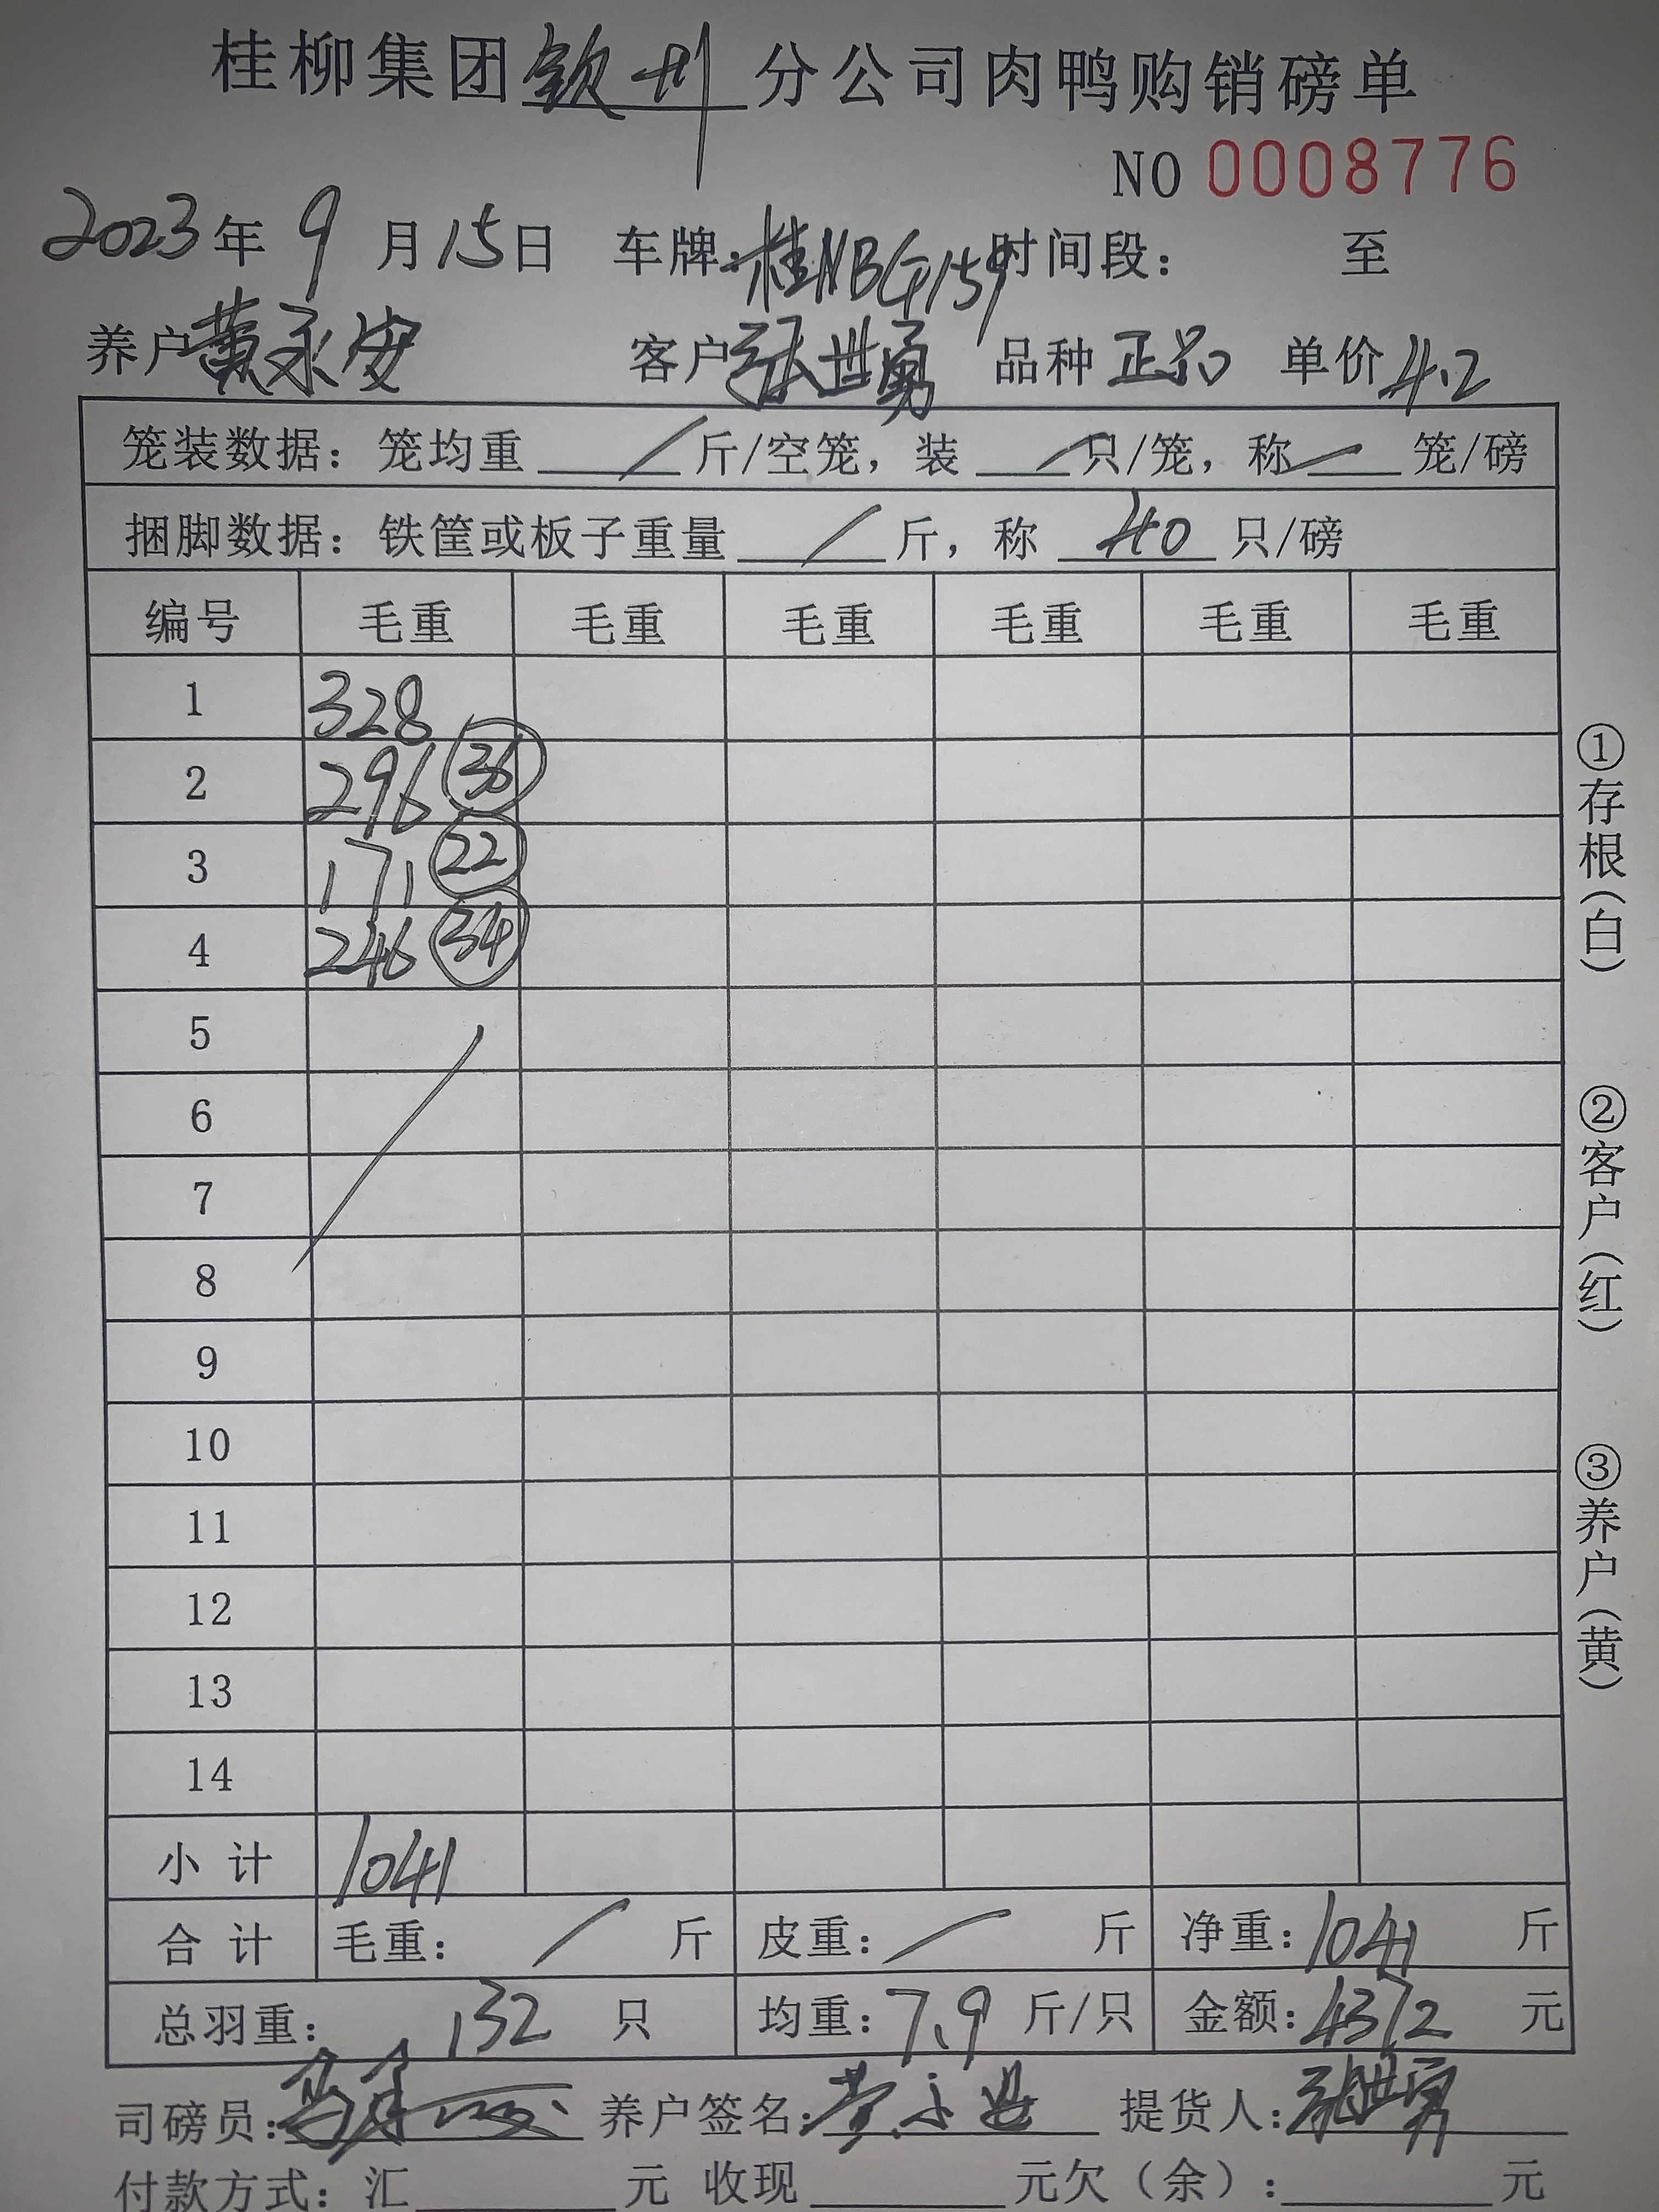 桂柳集团钦州分公司肉鸭购销磅单
NO 0008776
2023年 9 月 15 日 车牌：桂NBG159 时间段： 至
养户 黄永安 客户 张世勇 品种 正品 单价 4.2
笼装数据：笼均重 / 斤/空笼，装 / 只/笼，称 / 笼/磅
捆脚数据：铁筐或板子重量 / 斤，称 40 只/磅
编号 毛重 毛重 毛重 毛重 毛重 毛重
1 328
2 296 36
3 171 22
4 246 34
5
6
7
8
9
10
11
12
13
14
小计 1041
合计 毛重： / 斤 皮重： / 斤 净重：1041 斤
总羽重： 132 只 均重：7.9 斤/只 金额：4372 元
司磅员： 养户签名：黄永安 提货人：张世勇
付款方式：汇 元 收现 元欠（余）： 元
①存根（白）
②客户（红）
③养户（黄）